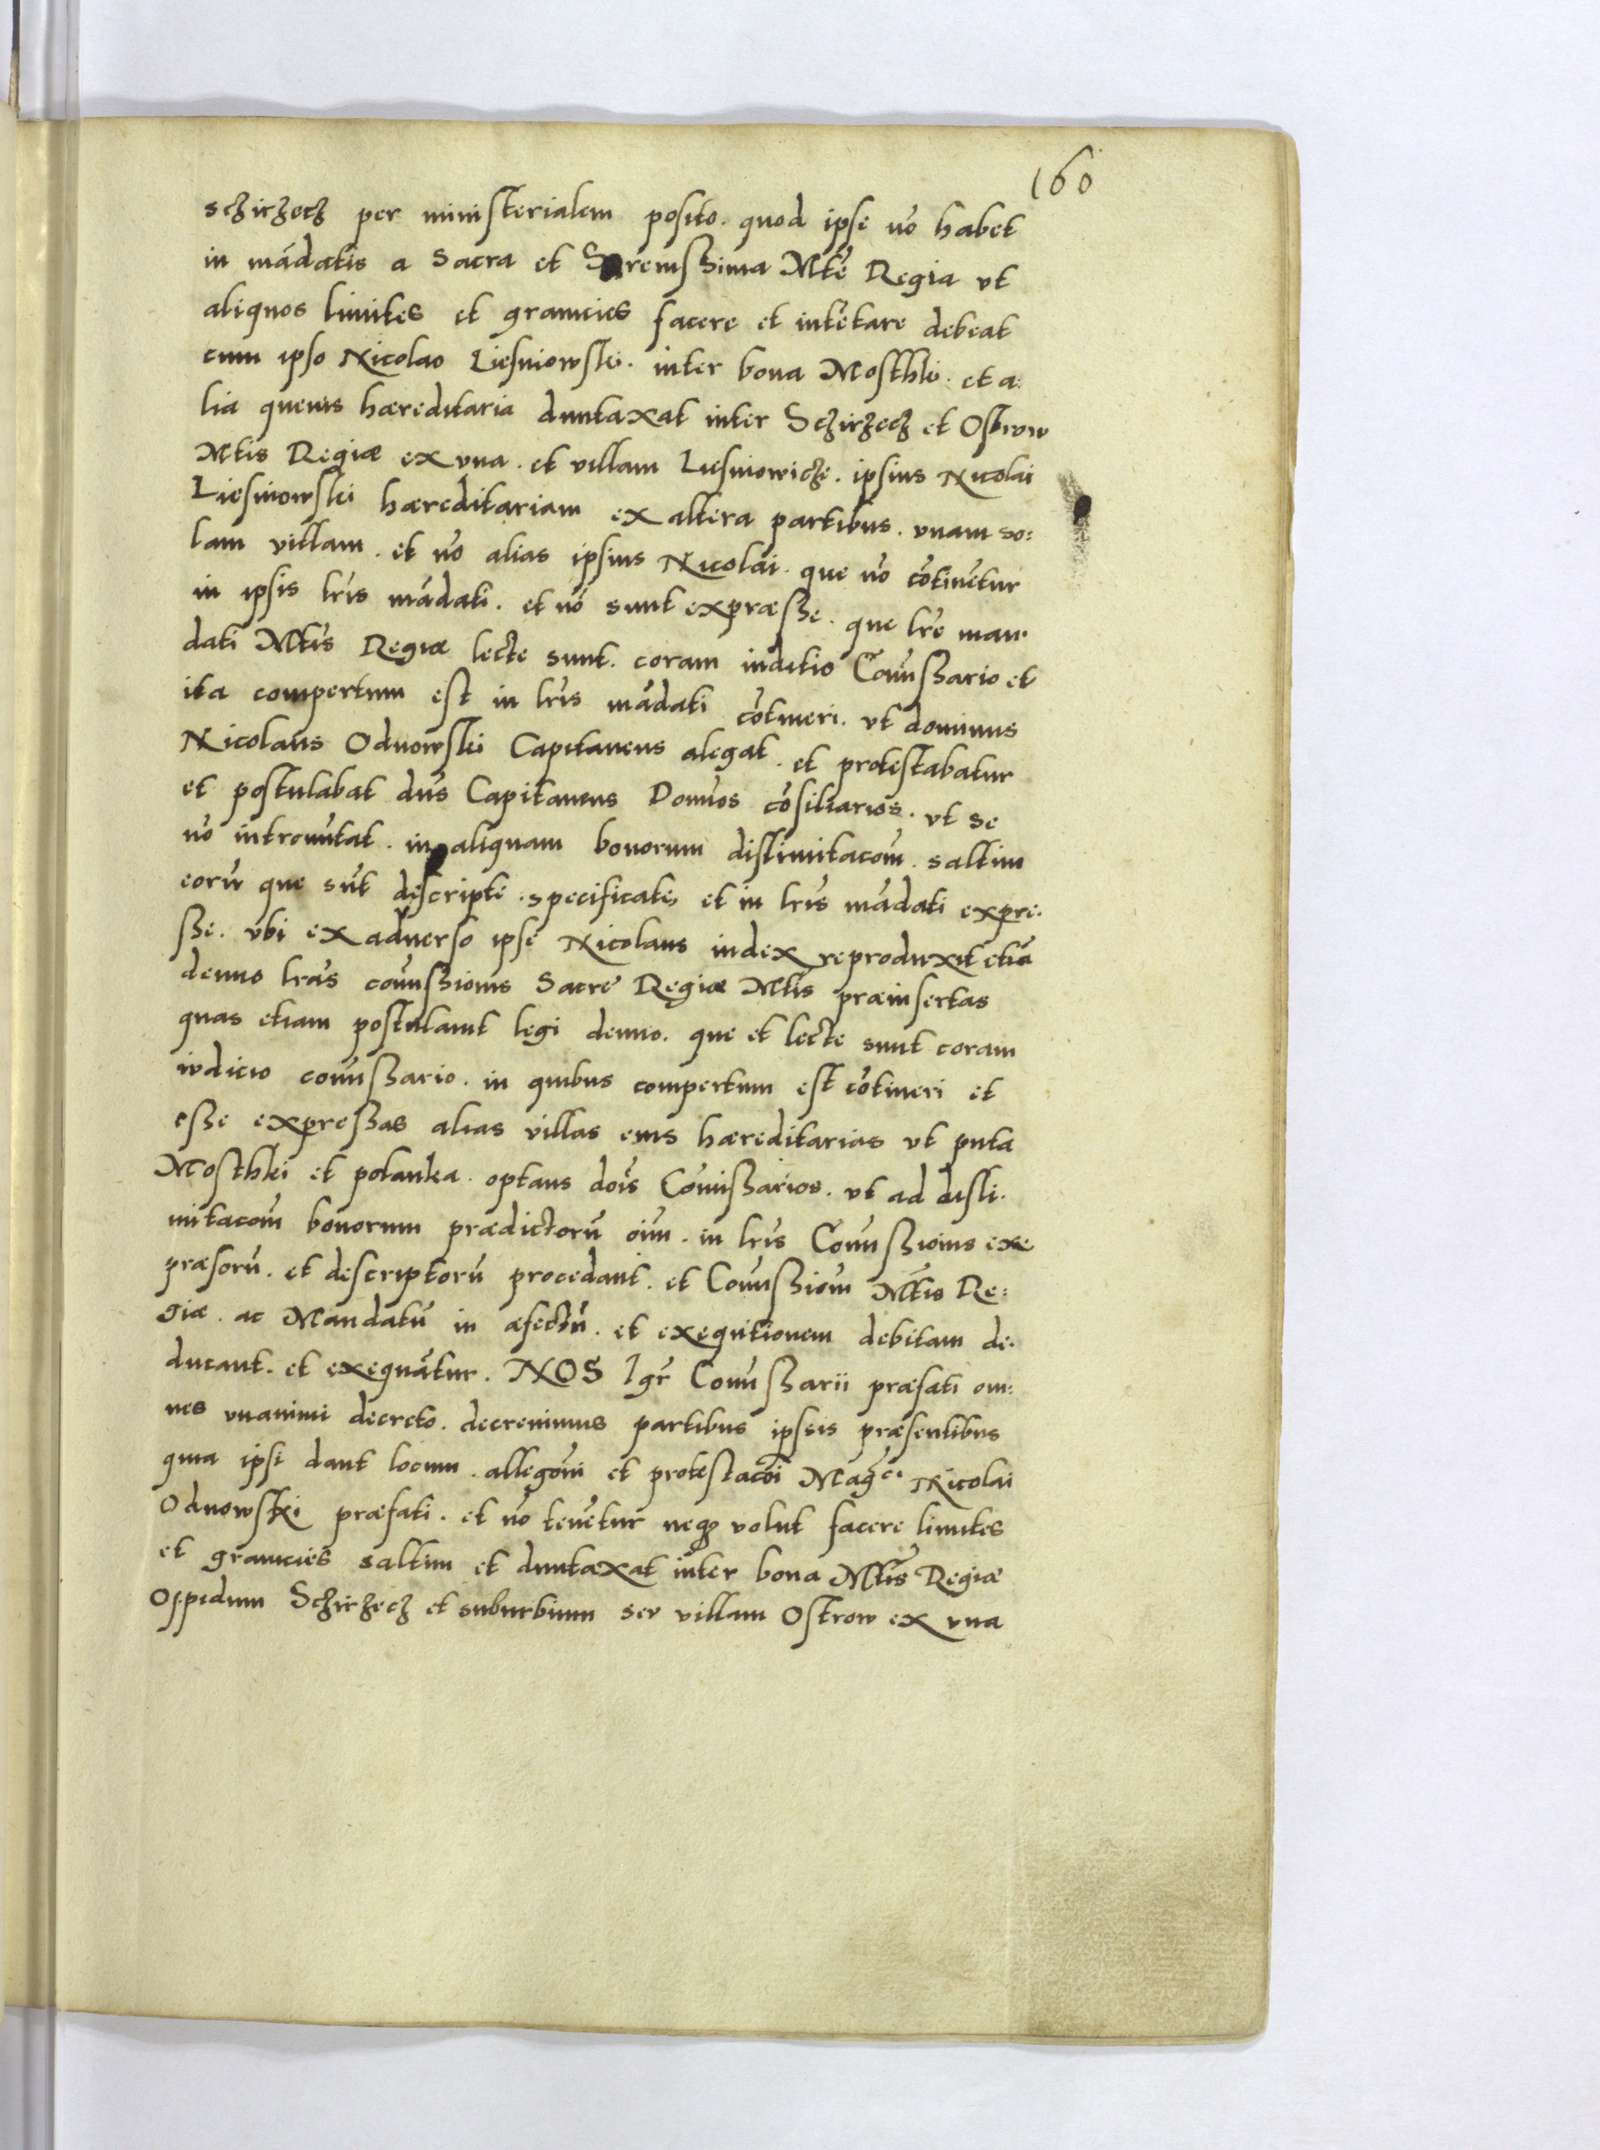 160
Sczirzecz per ministerialem posito. quod ipse nō habet
in mādatis a Sacra et Serenissima Mtē Regia vt
aliquos limites et granicies facere et intētare debeat
cum ipso Nicolao Liesniowski. inter bona Mosthki. et a:
lia queuis hæreditaria duntaxat inter Sczirzecz et Ostrow
Mtis Regiæ ex vna. et villam Liesniowicze. ipsius Nicolai
Liesniowski hæreditariam ex altera partibus. vnam so:
lam villam. et nō alias ipsius Nicolai. que nō cōtinētur
in ipsis lr̄is mādati. et nō sunt expræsse. que lr̄e man
dati Mtis Regiæ lecte sunt. coram iuditio Com̄issario et
ita compertum est in lr̄is mādati cōtineri. vt dominus
Nicolaus Odnowski Capitaneus alegat. et protestabatur
et postulabat dn̄s Capitaneus Domīos cōsiliarios. vt se
nō intromittat. in aliquam bonorum dislimitacōm. saltim
eorū que sūt descripte. specificate, et in lr̄is mādati expre.
sse. vbi ex aduerso ipse Nicolaus iudex reproduxit etiā
denuo lrās com̄issionis Sacre Regiæ Mtis præinsertas
quas etiam postulauit legi denuo. que et lecte sunt coram
iudicio com̄issario. in quibus compertum est cōtineri et
esse expressas alias villas eius hæreditarias vt puta
Mosthki et polanka. optans dōis Com̄issarios. vt ad disli.
mitacōm bonorum prædictorū oīm. in lr̄is Com̄issionis exe
præsorū. et descriptorū procedant. et Com̄issiōm Mtis Re:
giæ. ac Mandatū in æfectū. et exequitionem debitam de.
ducant. et exequātur. NOS Igr̄ Com̄issarii præfati om:
nes vnanimi decreto. decreuimus partibus ipsis præsentibus
quia ipsi dant locum. allegōni et protestacōi Magci Nicolai
Odnowski præfati. et nō tenētur neqꝫ volūt facere limites
et granicies saltim et duntaxat inter bona Mtis Regiæ
Oppidum Sczirzecz et suburbium seu villam Ostrow ex vna